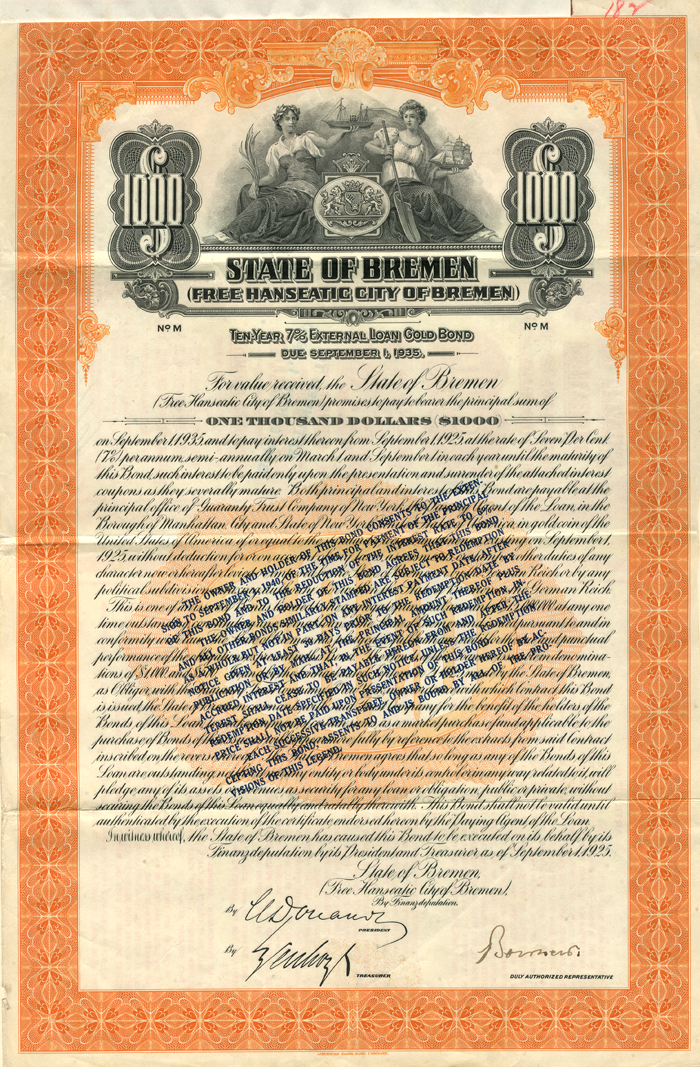 182
$1000
$1000
STATE OF BREMEN
(FREE HANSEATIC CITY OF BREMEN)
No M
No M
TEN-YEAR 7% EXTERNAL LOAN GOLD BOND
DUE SEPTEMBER 1, 1935.
For value received, the State of Bremen
(Free Hanseatic City of Bremen) promises to pay to bearer the principal sum of
ONE THOUSAND DOLLARS ($1000)
on September 1, 1935 and to pay interest thereon from September 1, 1925 at the rate of Seven Per Cent
(7%) per annum, semi-annually on March 1 and September 1 in each year until the maturity of
this Bond, such interest to be paid only upon the presentation and surrender of the attached interest
coupons as they severally mature. Both principal and interest of this Bond are payable at the
principal office of Guaranty Trust Company of New York, Agent of the Loan, in the
Borough of Manhattan, City and State of New York, in gold coin of the
United States of America of or equal to the on September 1,
1925, without deduction for or on other duties of any
character now or hereafter levied Reich or by any
political subdivision German Reich.
This is one of at any one
time outstanding pursuant to and in
conformity and punctual
performance of the denomina-
tions of $1000 and by the State of Bremen,
as Obligor, with which Contract this Bond
is issued, the State Company for the benefit of the holders of the
Bonds of this Loan as a market purchase fund applicable to the
purchase of Bonds more fully by reference to the extracts from said Contract
inscribed on the reverse Bremen agrees that so long as any of the Bonds of this
Loan are outstanding any entity or body under its control or in any way related to it, will
pledge any of its assets or revenues as security for any loan or obligation, public or private, without
securing the Bonds of this Loan equally and ratably therewith. This Bond shall not be valid until
authenticated by the execution of the certificate endorsed hereon by the Paying Agent of the Loan.
In witness whereof, the State of Bremen has caused this Bond to be executed on its behalf by its
Finanzdeputation by its President and Treasurer as of September 1, 1925.
THE OWNER AND HOLDER OF THIS BOND CONSENTS TO THE EXTEN-
SION TO SEPTEMBER 1, 1940, OF THE TIME FOR PAYMENT OF THE PRINCIPAL
OF THIS BOND AND TO THE REDUCTION OF THE INTEREST RATE TO 6%.
THE OWNER AND HOLDER OF THIS BOND AGREES THAT THIS BOND
AND ALL OTHER BONDS SIMILARLY STAMPED ARE SUBJECT TO REDEMPTION
AS A WHOLE BUT NOT IN PART, ON ANY INTEREST PAYMENT DATE AFTER
NOTICE GIVEN AT LEAST 30 DAYS PRIOR TO THE REDEMPTION DATE BY
PUBLICATION OR BY MAIL, AT THE PRINCIPAL AMOUNT THEREOF PLUS
ACCRUED INTEREST AND THAT IN THE EVENT OF SUCH REDEMPTION, IN-
TEREST SHALL CEASE TO BE PAYABLE HEREON FROM AND AFTER THE
REDEMPTION DATE SPECIFIED IN SUCH NOTICE UNLESS THE REDEMPTION
PRICE SHALL NOT BE PAID UPON PRESENTATION OF THIS BOND.
EACH SUCCESSIVE TRANSFEREE OWNER OR HOLDER HEREOF BY AC-
CEPTING THIS BOND, ASSENTS TO AND IS BOUND BY ALL OF THE PRO-
VISIONS OF THIS LEGEND.
State of Bremen,
(Free Hanseatic City of Bremen),
By Finanzdeputation.
By
PRESIDENT
By
TREASURER
DULY AUTHORIZED REPRESENTATIVE
AMERICAN BANK NOTE COMPANY.